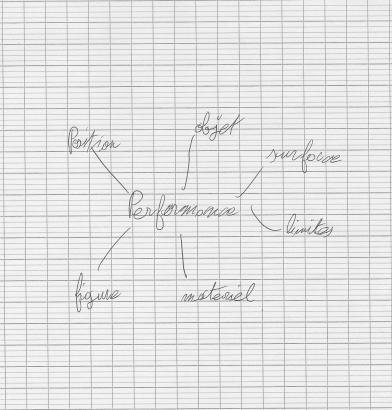 objet
Position
surface
Performance
limites
figure
matériel